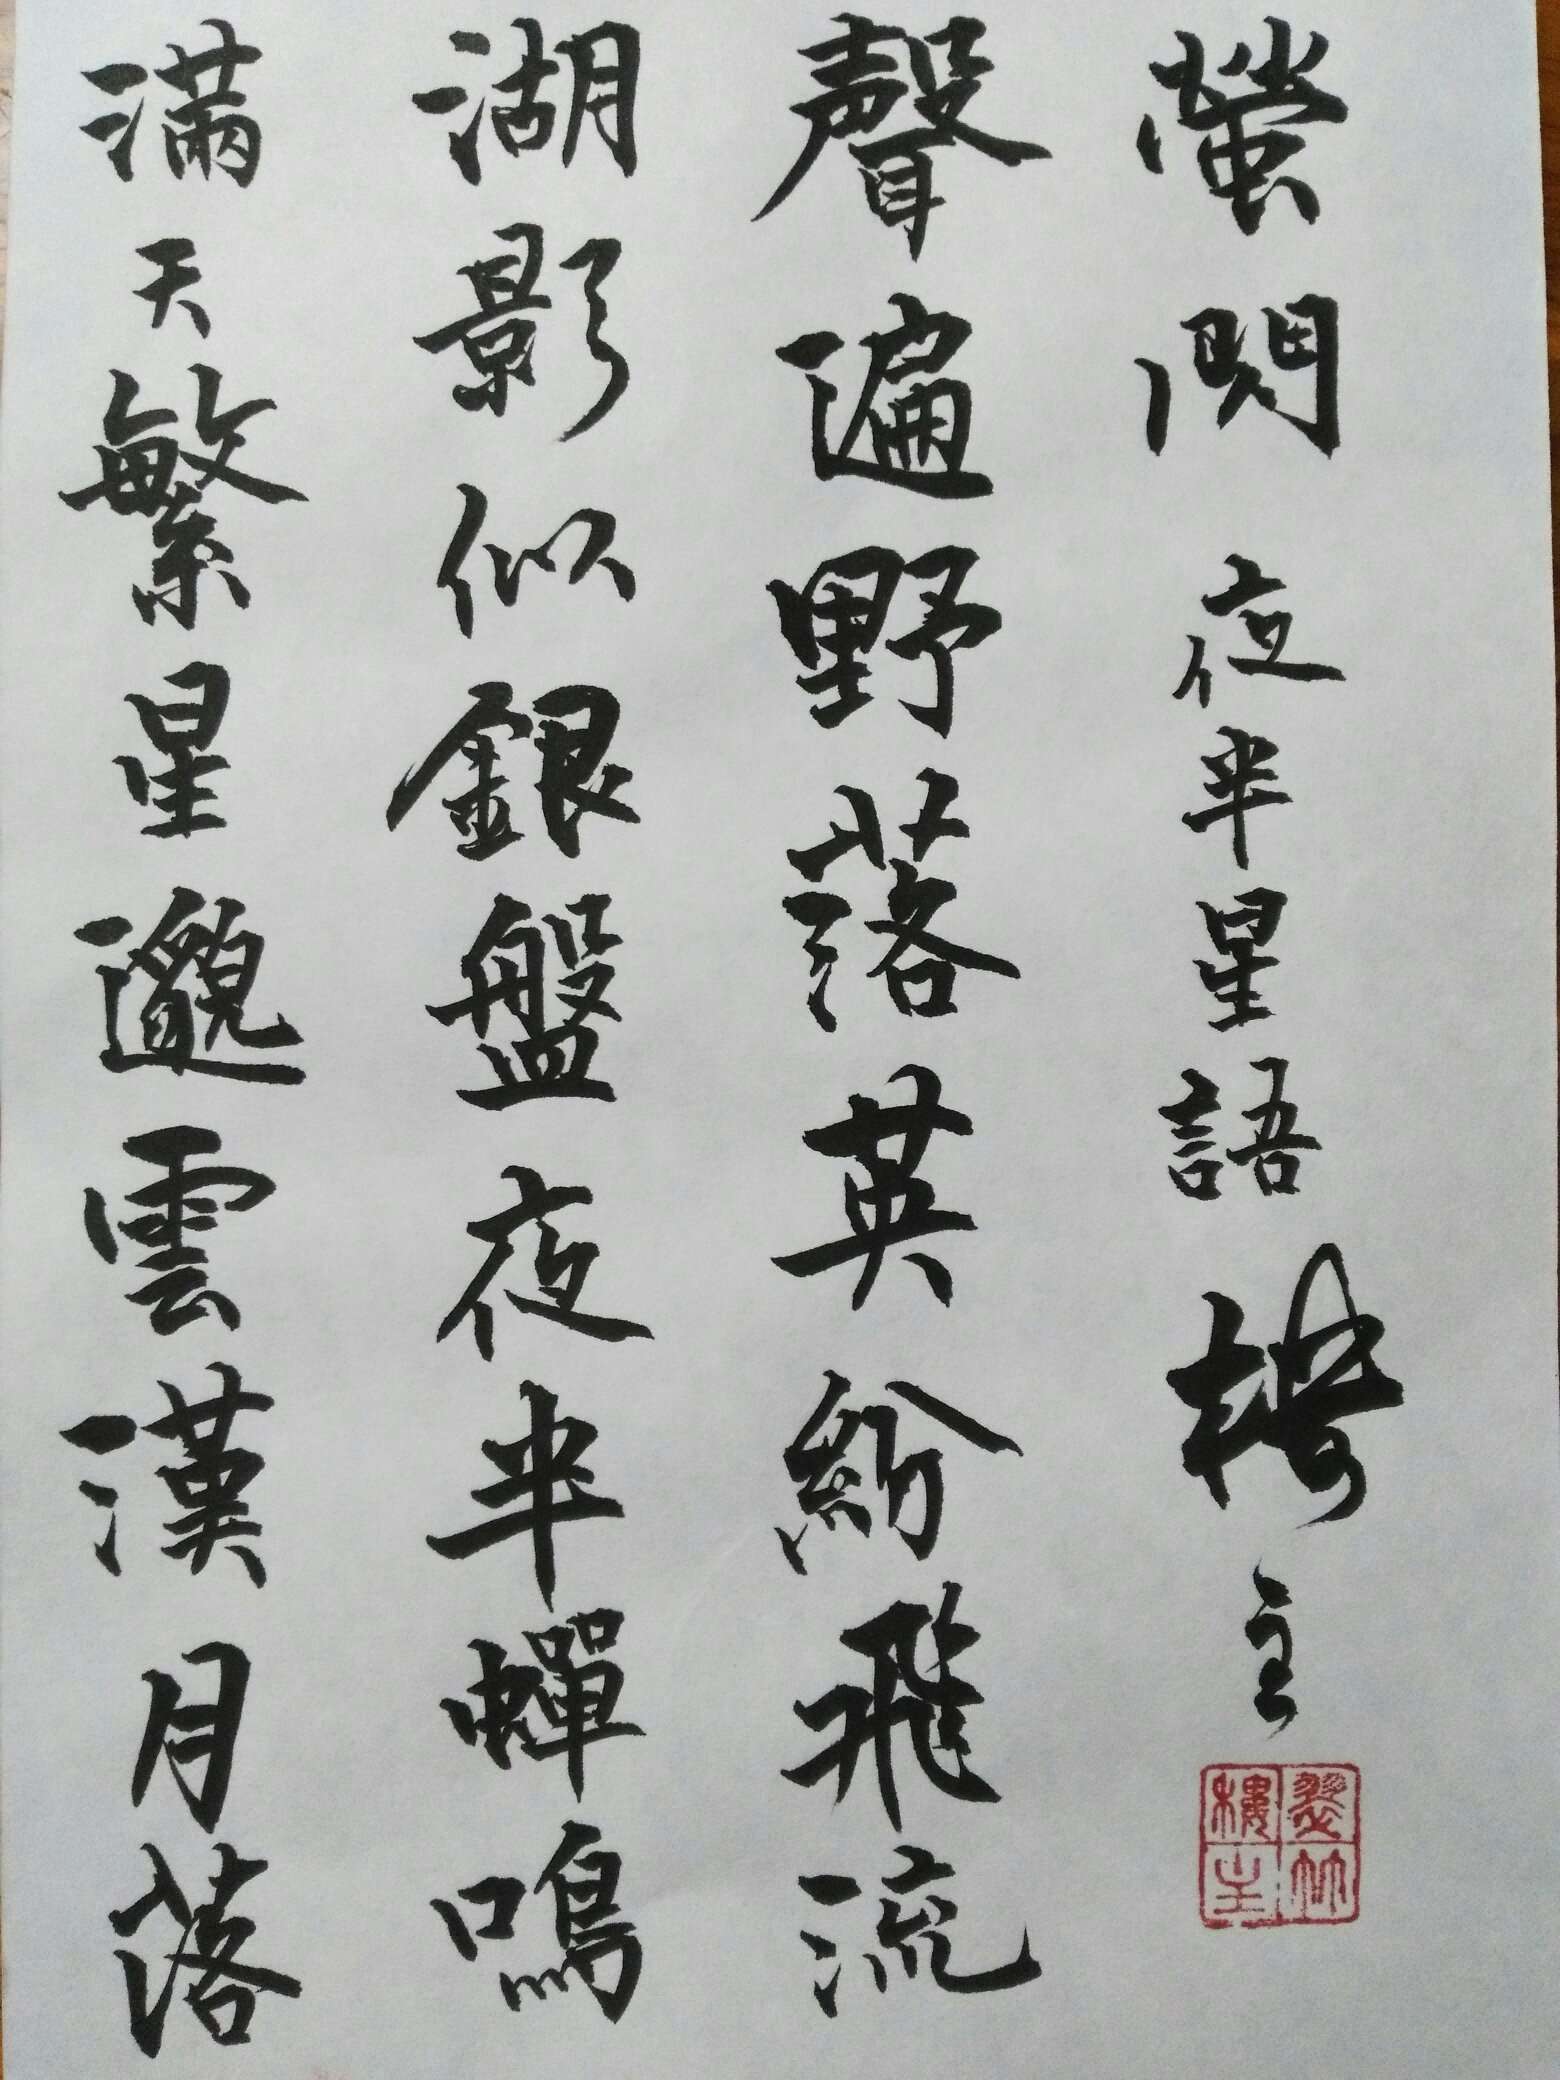 满天繁星邈雲漢月落
湖影似銀盤夜半蟬鳴
聲遍野落英紛飛流
螢閃 夜半星語 樓主
竹樓主